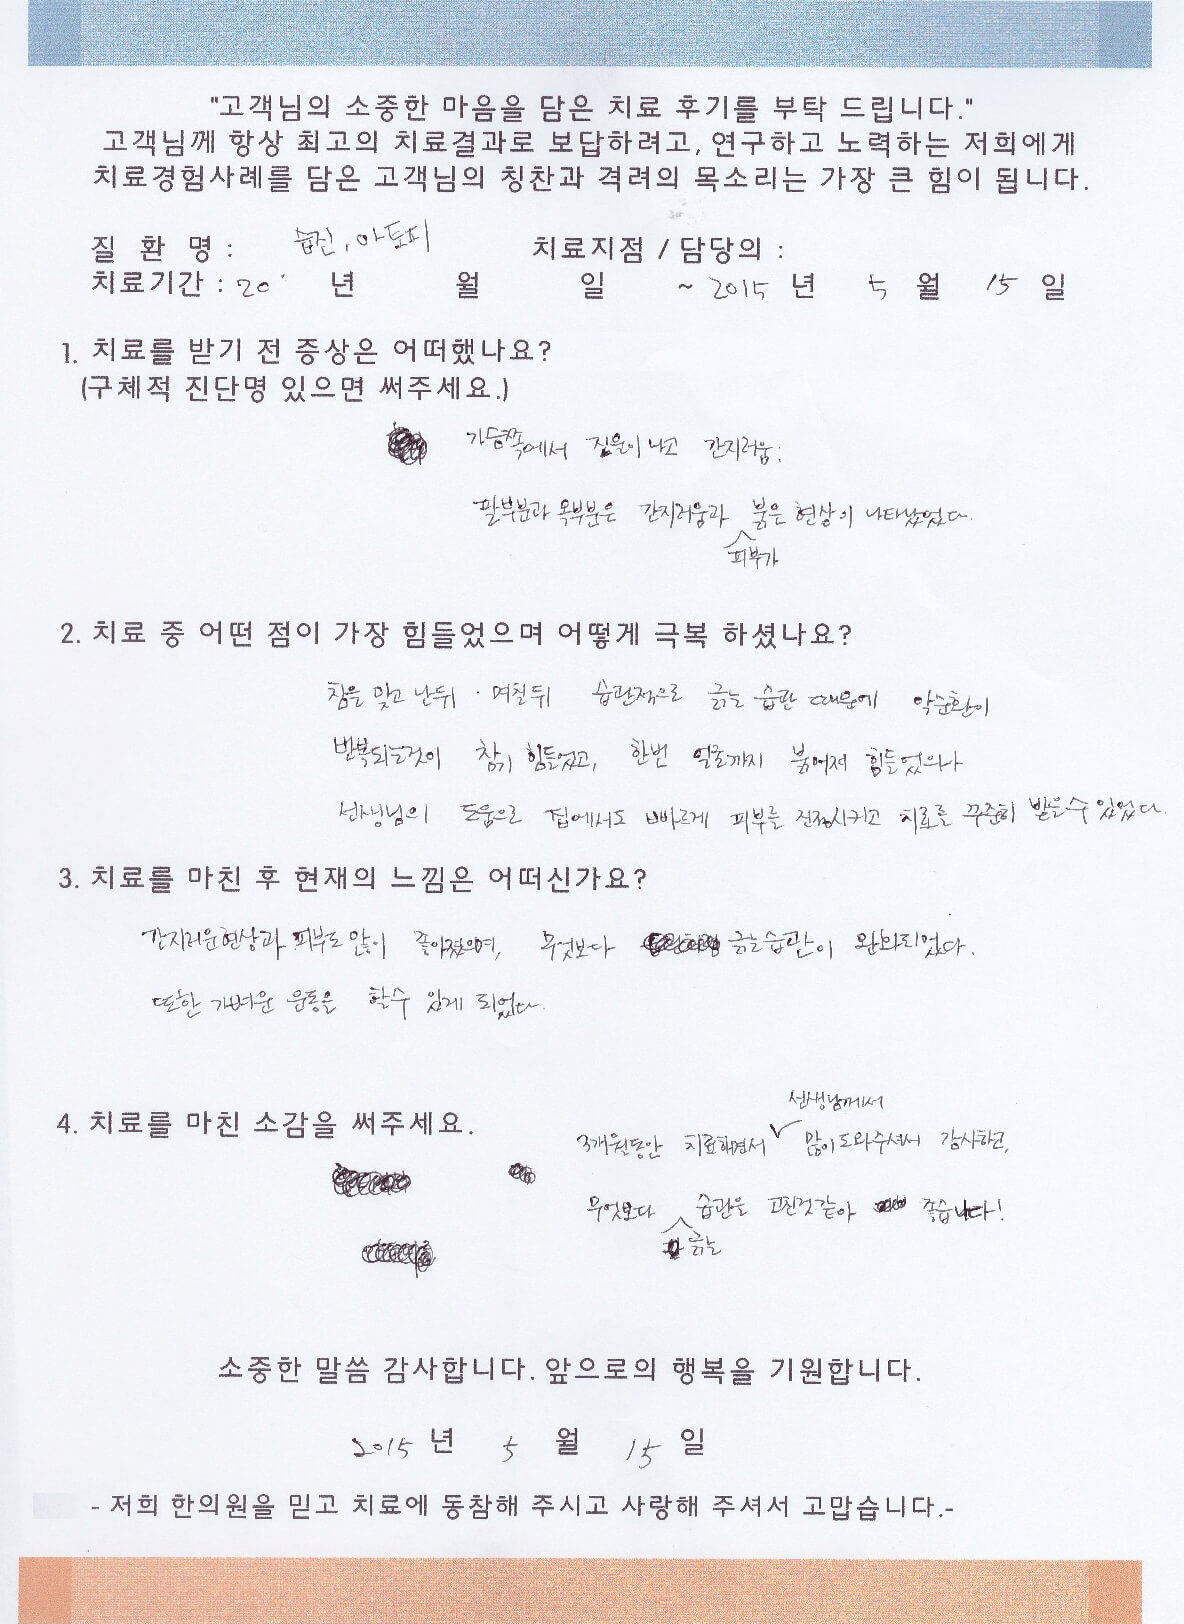 "고객님의 소중한 마음을 담은 치료 후기를 부탁 드립니다."
고객님께 항상 최고의 치료결과로 보답하려고, 연구하고 노력하는 저희에게
치료경험사례를 담은 고객님의 칭찬과 격려의 목소리는 가장 큰 힘이 됩니다.
질 환 명 : 습진, 아토피 치료지점 / 담당의 :
치료기간 : 20 년 월 일 ~ 2015 년 5 월 15 일
1. 치료를 받기 전 증상은 어떠했나요?
(구체적 진단명 있으면 써주세요.)
가슴쪽에서 진물이 나고 간지러움.
팔부분과 목부분은 간지러움과 붉은 현상이 나타났었다.
피부가
2. 치료 중 어떤 점이 가장 힘들었으며 어떻게 극복 하셨나요?
침을 맞고 난뒤 · 며칠뒤 습관적으로 긁는 습관 때문에 악순환이
반복되는것이 참기 힘들었고, 한번 얼굴까지 붉어져 힘들었으나
선생님의 도움으로 집에서도 빠르게 피부를 진정시키고 치료를 꾸준히 받을수 있었다.
3. 치료를 마친 후 현재의 느낌은 어떠신가요?
간지러운현상과 피부도 많이 좋아졌으며, 무엇보다 긁는습관이 완화되었다.
또한 가벼운 운동을 할수 있게 되었다.
4. 치료를 마친 소감을 써주세요.
선생님께서
3개월동안 치료하면서 많이도와주셔서 감사하고,
무엇보다 습관을 고친것같아 좋습니다!
긁는
소중한 말씀 감사합니다. 앞으로의 행복을 기원합니다.
2015 년 5 월 15 일
- 저희 한의원을 믿고 치료에 동참해 주시고 사랑해 주셔서 고맙습니다.-